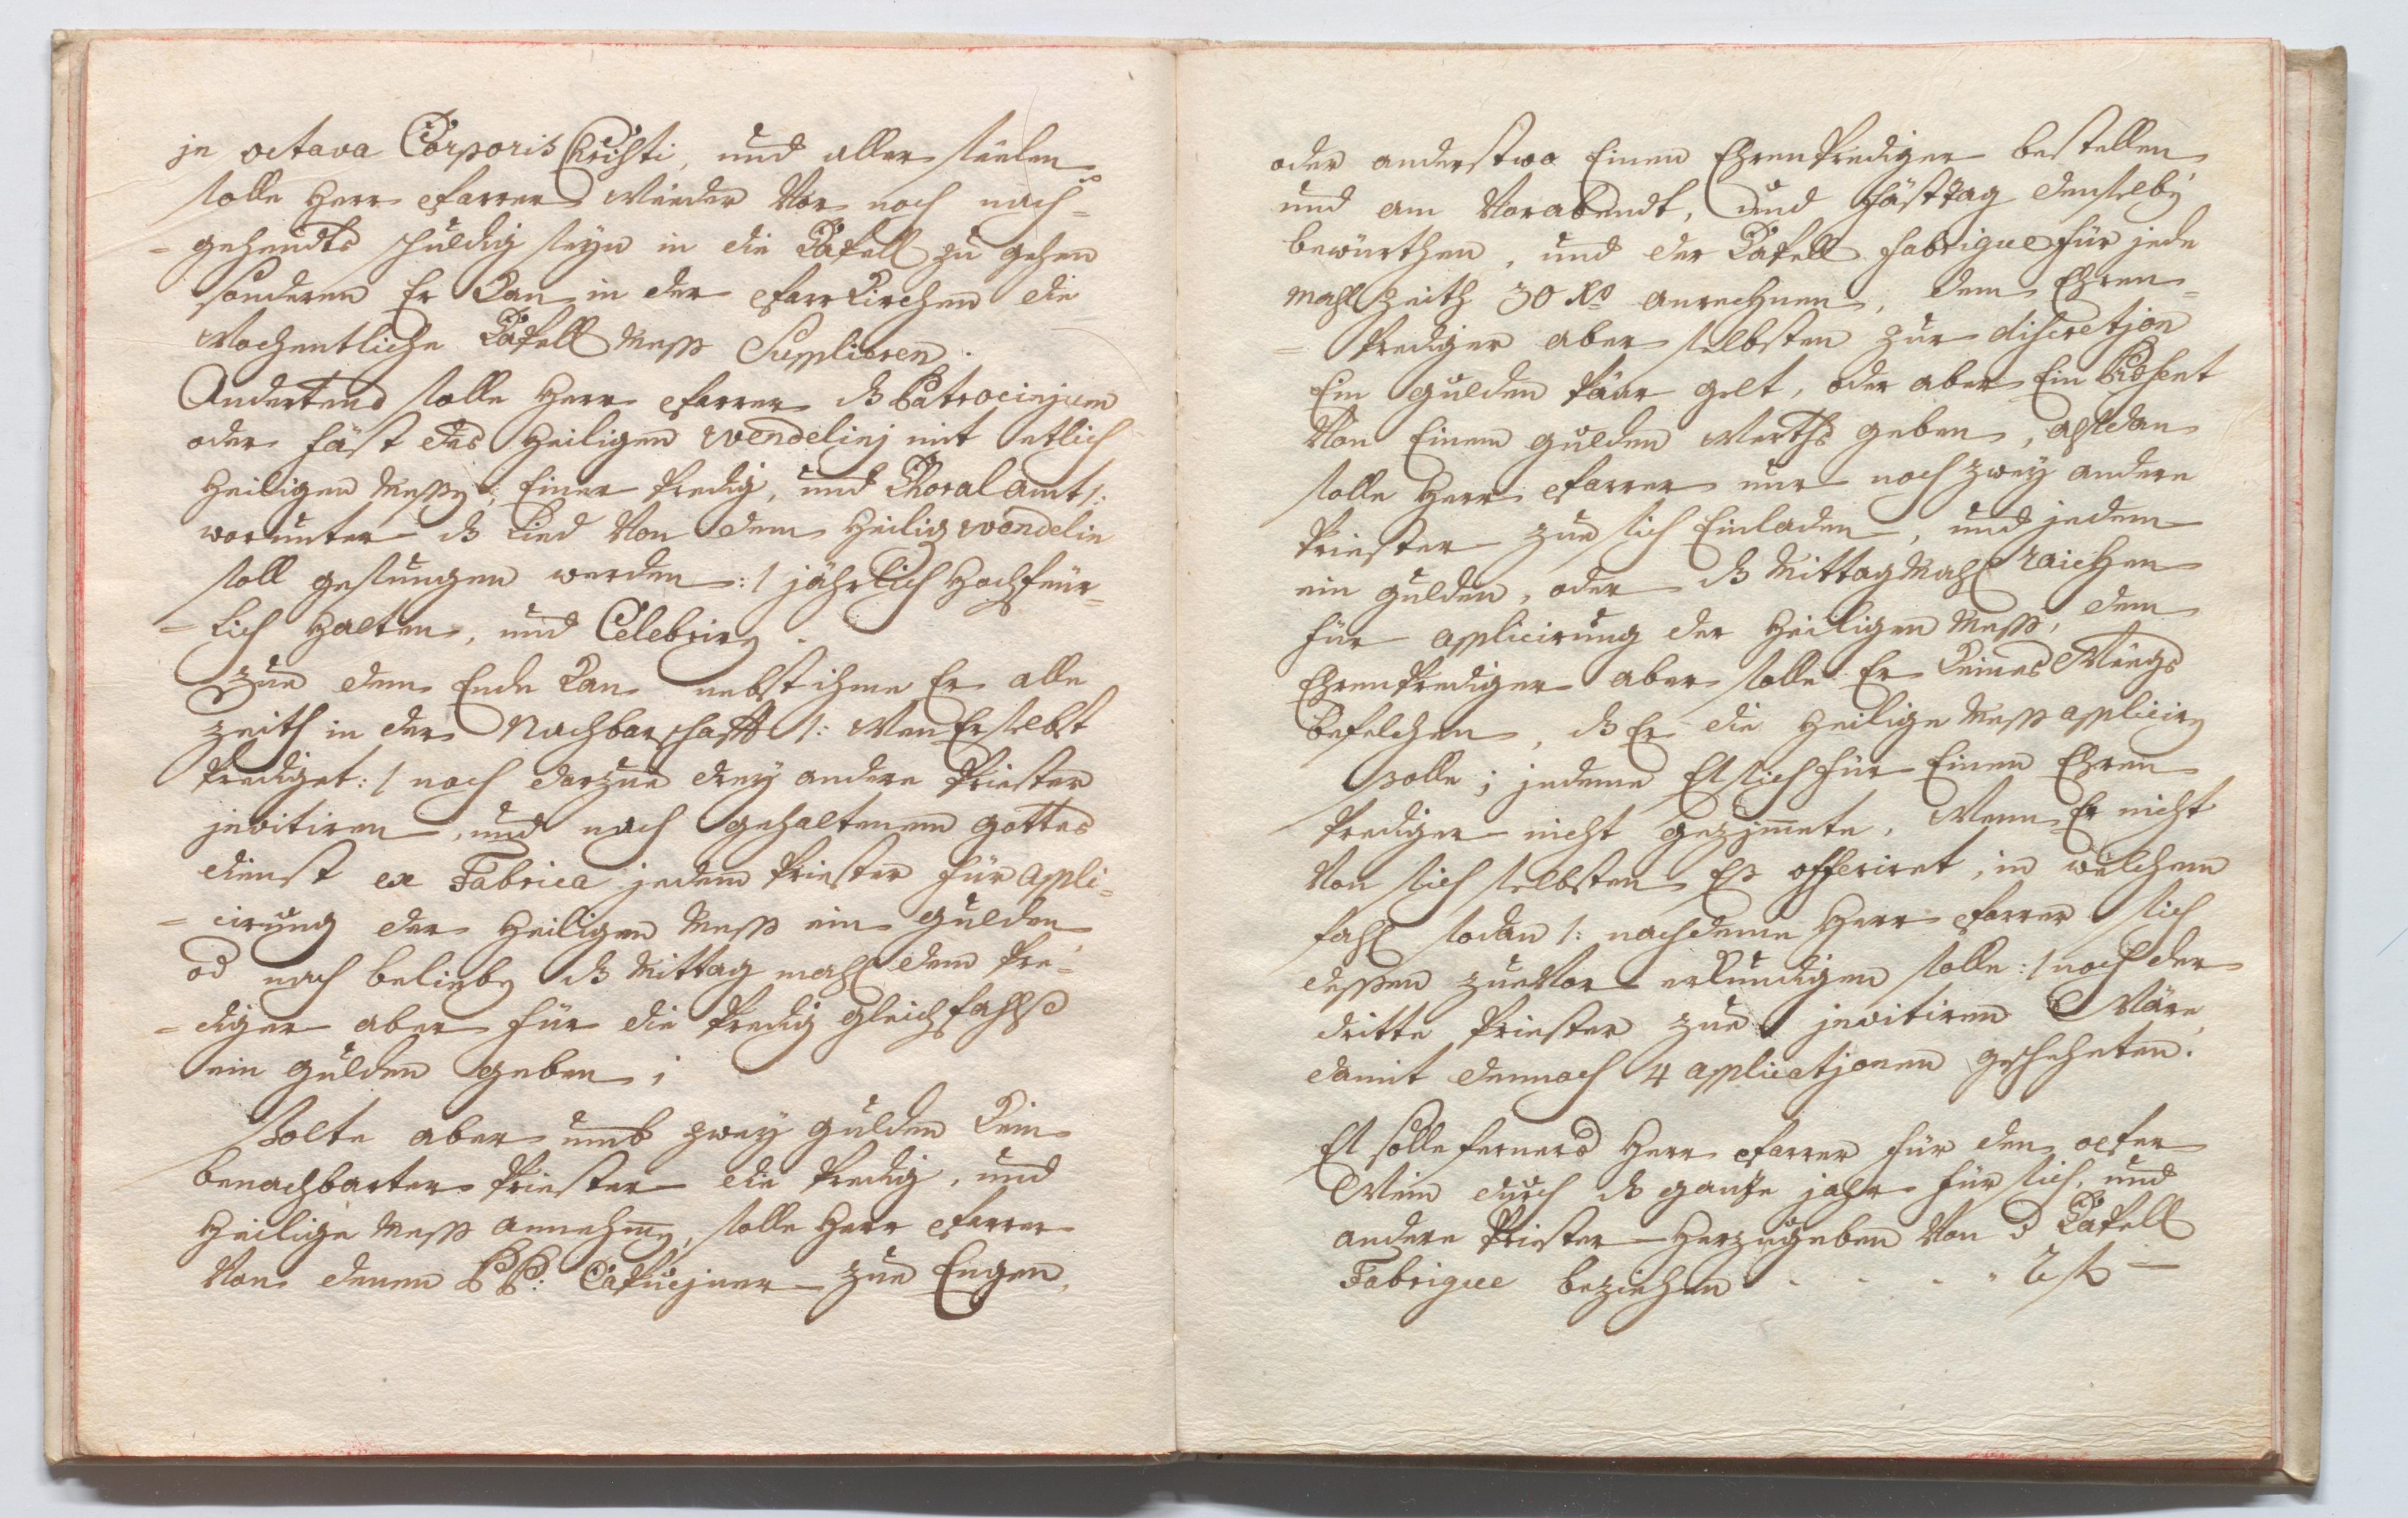 in octava Corporis Christi, und aller seelen
solle Herr Pfarrer weder Vor noch nach=
=gehendts schuldig seyn in die Capell zu gehen
sonderen Er Kan in der PfarrKirchen die
Wochentliche Capell Mess Suplieren.
Andertens solle Herr Pfarrer dz Patrocinium
oder fäst des Heiligen Wendelini mit etlich
Heiligen Messen, Einer Predig, und Choral amt /:
worunter dz Lied Von dem Heilig Wendelin
soll gesungen werden :/ jährlich Hochfeür=
=lich Halten, und Celebriren.
Zue dem Ende Kan nebst ihme Er alle
zeith in der Nachbarschafft /: Wan Er selbst
Prediget :/ noch darzue drey andere Priester
invitiren, und nach gehaltenem gottes
dienst ex Fabrica jedem Priester für apli=
=cirung der Heiligen Mess ein gulden,
od nach belieben dz Mittag mahl dem Pre=
=diger aber für die Predig gleichfahls
ein gulden geben;
Solte aber umb zwey gulden Kein
benachbarter Priester die Predig, und
Heilige Mess annehmen, solle Herr Pfarrer
Von denen PP: Capuciner zue Engen,
oder anderstwo Einen EhrenPrediger bestellen
und am Vorabendt, und fästtag denselben
bewürthen, und der Capell fabrique für jede
Mahlzeith 30 Kr anrechnen, dem Ehren=
=Prediger aber selbsten zur discretion
Ein gulden paar gelt, oder aber Ein Present
Von Einem gulden Werths geben, alsdan
solle Herr Pfarrer nur noch zwey andere
Priester zue sich Einladen, und jedem
ein gulden, oder dz MittagMahl raichen
für aplicirung der Heiligen Mess, dem
EhrenPrediger aber solle Er Keines Weegs
befelchen, dz Er die Heilige Mess apliciren
solle; indeme Es sich für Einen Ehren
Prediger nicht gezimete, Wenn Er nicht
Von sich selbsten Es offeriret, in welchem
fahl sodan /: nachdeme Herr Pfarrer sich
dessen zueVor erkundigen solle :/ noch der
dritte Priester zue invitiren Wäre,
damit dennoch 4 applicationen gescheheten.
Es solle ferners Herr Pfarrer für den opfer
Wein durch dz gantze jahr für sich, und
andere Priester Herzugeben Von d Capell
Fabrique beziehen - - - - 2 fl —